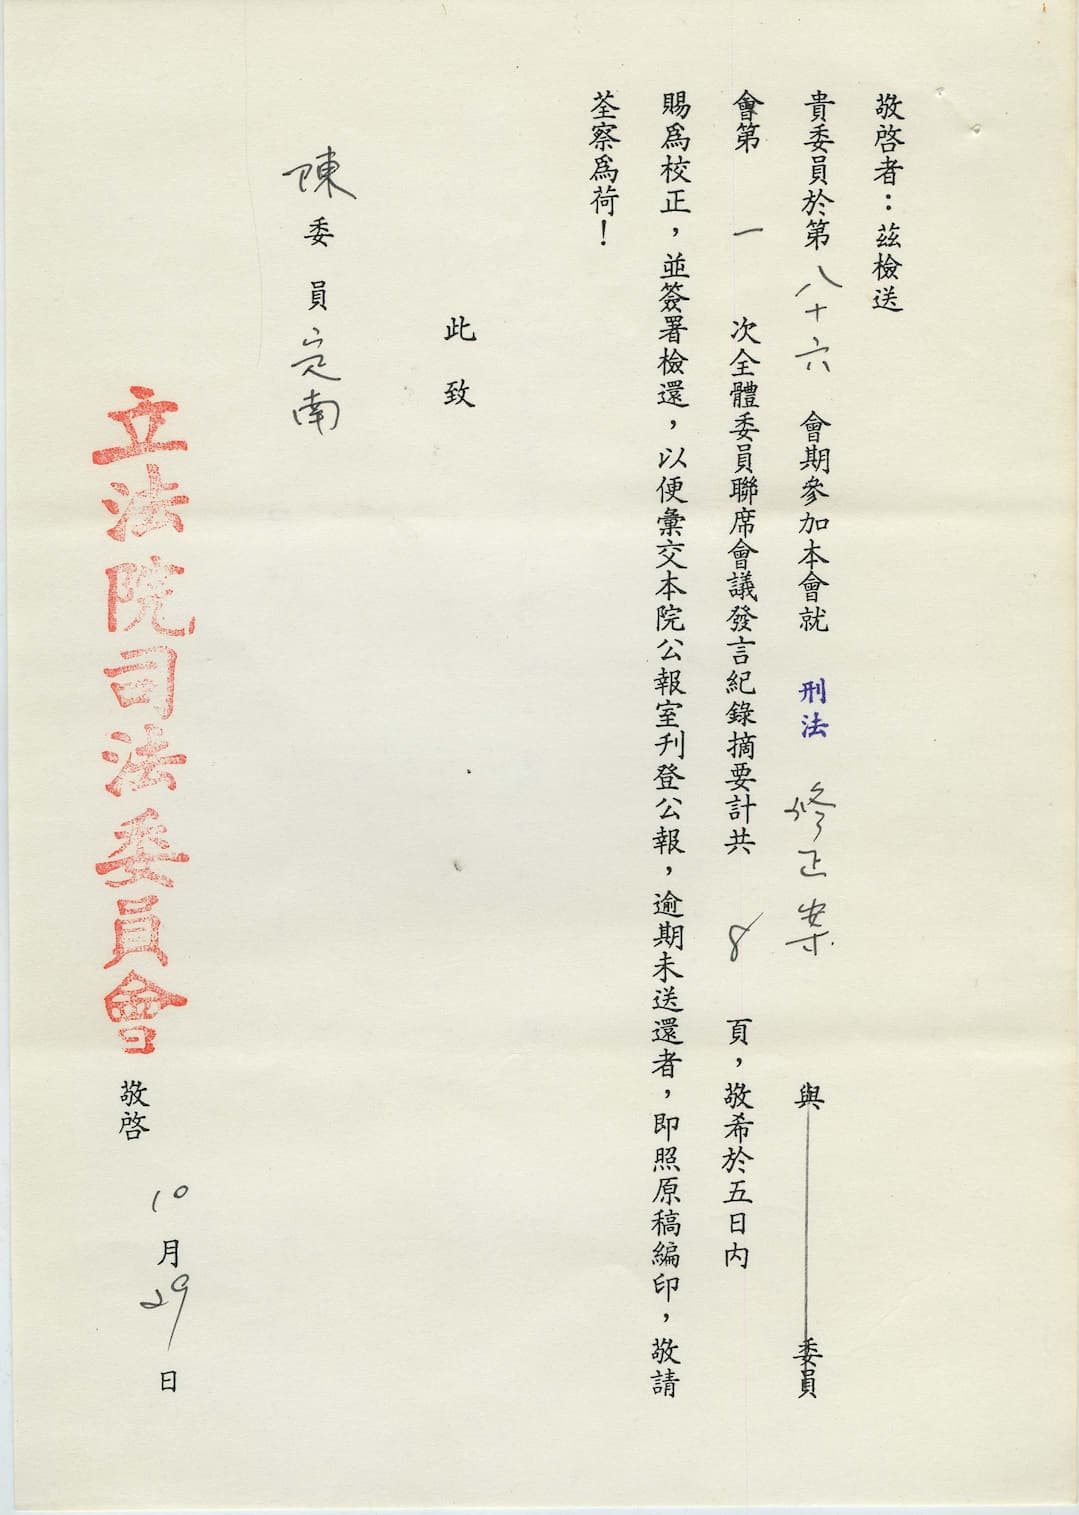 敬啓者：茲檢送
貴委員於第八十六會期參加本會就刑法修正案與委員
會第一次全體委員聯席會議發言紀錄摘要計共8頁，敬希於五日內
賜爲校正，並簽署檢還，以便彙交本院公報室刋登公報，逾期未送還者，即照原稿編印，敬請
荃察爲荷！
此致
陳委員定南
立法院司法委員會敬啓
10月29日